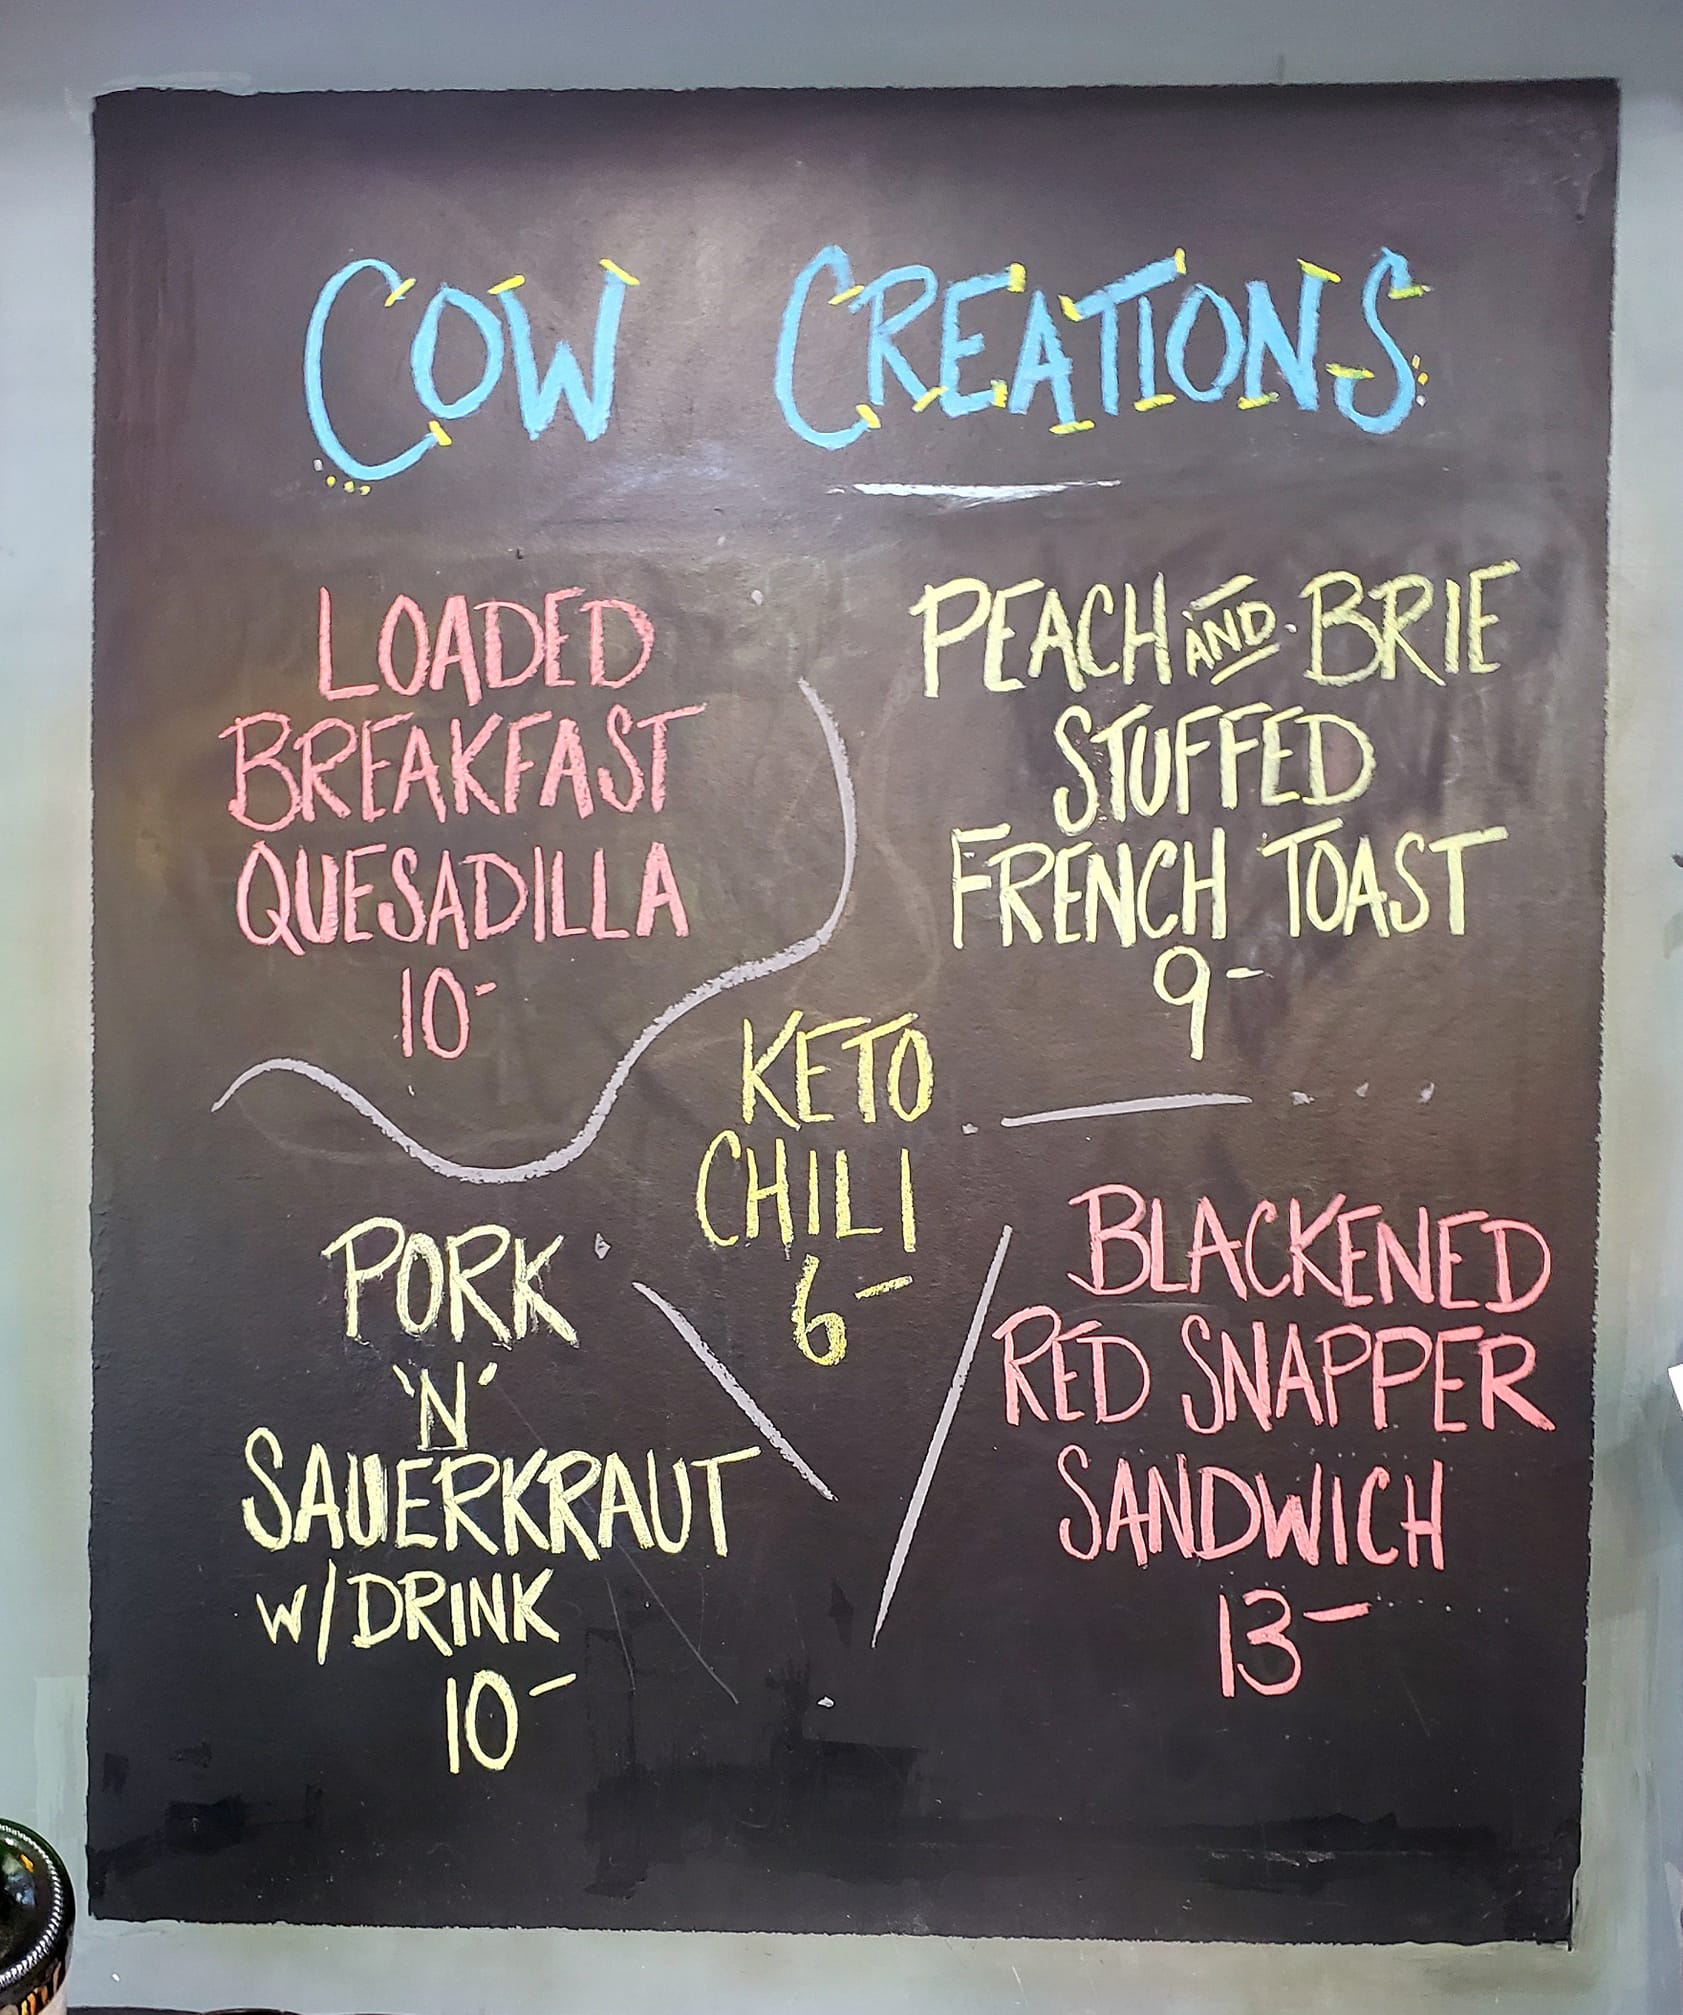 COW CREATIONS
LOADED
BREAKFAST
QUESADILLA
10-
PEACH AND BRIE
STUFFED
FRENCH TOAST
9-
KETO
CHILI
6-
PORK
'N'
SAUERKRAUT
W/DRINK
10-
BLACKENED
RED SNAPPER
SANDWICH
13-